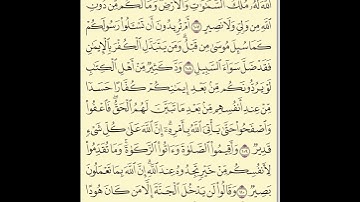 اللَّهَ لَهُ مُلْكُ السَّمَٰوَٰتِ وَالْأَرْضِ وَمَا لَكُم مِّن دُونِ
اللَّهِ مِن وَلِيٍّ وَلَا نَصِيرٍ ١٠٧ أَمْ تُرِيدُونَ أَن تَسْـَٔلُوا۟ رَسُولَكُمْ
كَمَا سُئِلَ مُوسَىٰ مِن قَبْلُ وَمَن يَتَبَدَّلِ الْكُفْرَ بِالْإِيمَٰنِ
فَقَدْ ضَلَّ سَوَآءَ السَّبِيلِ ١٠٨ وَدَّ كَثِيرٌ مِّنْ أَهْلِ الْكِتَٰبِ
لَوْ يَرُدُّونَكُم مِّن بَعْدِ إِيمَٰنِكُمْ كُفَّارًا حَسَدًا
مِّنْ عِندِ أَنفُسِهِم مِّن بَعْدِ مَا تَبَيَّنَ لَهُمُ الْحَقُّ فَاعْفُوا۟
وَاصْفَحُوا۟ حَتَّىٰ يَأْتِيَ اللَّهُ بِأَمْرِهِۦٓ إِنَّ اللَّهَ عَلَىٰ كُلِّ شَىْءٍ
قَدِيرٌ ١٠٩ وَأَقِيمُوا۟ الصَّلَوٰةَ وَءَاتُوا۟ الزَّكَوٰةَ وَمَا تُقَدِّمُوا۟
لِأَنفُسِكُم مِّنْ خَيْرٍ تَجِدُوهُ عِندَ اللَّهِ إِنَّ اللَّهَ بِمَا تَعْمَلُونَ
بَصِيرٌ ١١٠ وَقَالُوا۟ لَن يَدْخُلَ الْجَنَّةَ إِلَّا مَن كَانَ هُودًا